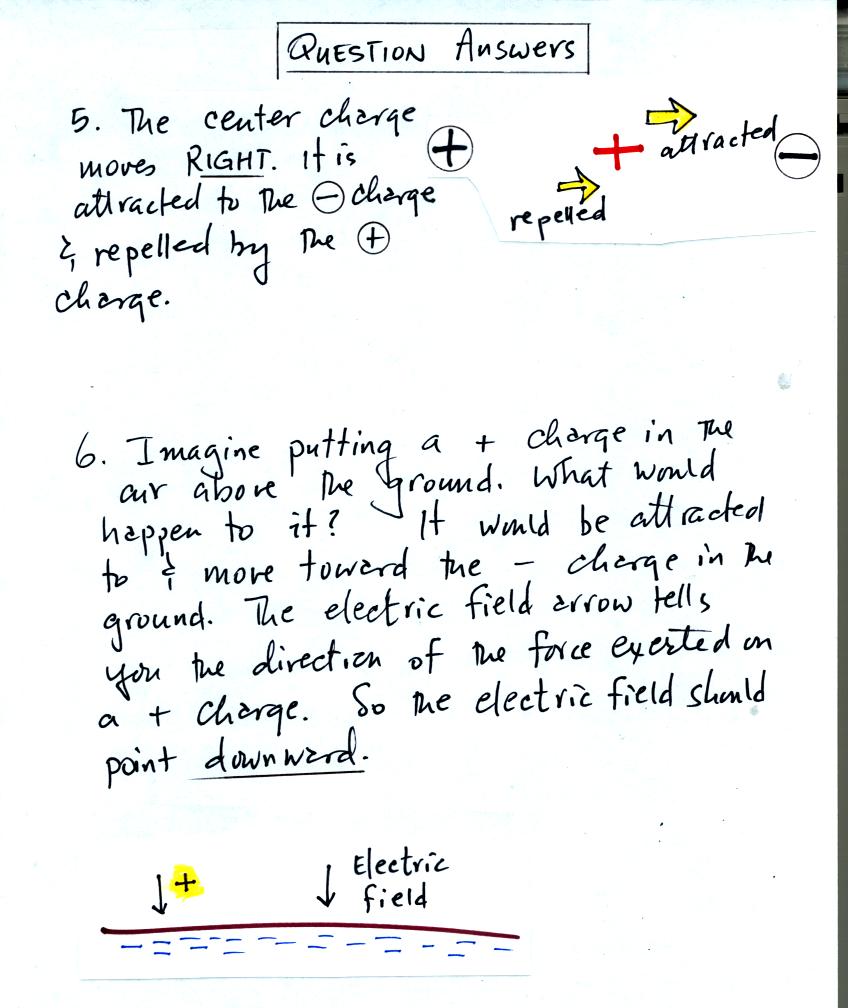 QUESTION Answers
5. The center charge
moves RIGHT. It is
attracted to the ⊖ charge
& repelled by the ⊕
charge.
+
+
attracted
−
repelled
6. Imagine putting a + charge in the
air above the ground. What would
happen to it? It would be attracted
to & move toward the − charge in the
ground. The electric field arrow tells
you the direction of the force exerted on
a + charge. So the electric field should
point downward.
+
Electric
field